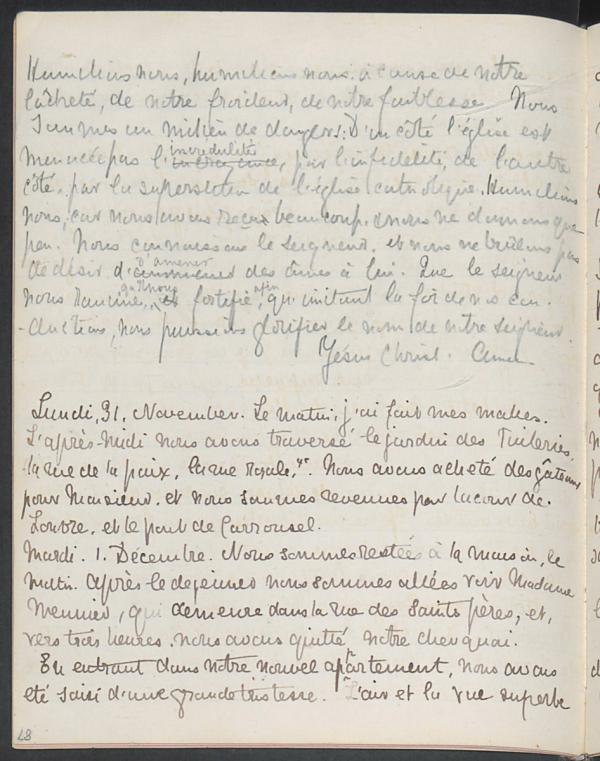 Humilions nous, humilions nous à cause de notre
lâcheté, de notre froideur, de notre faiblesse. Nous
sommes au milieu de dangers: D'un côté l'église est
menacée par l'incrédulité, par l'infidélité, de l'autre
côté, par la superstition de l'église catholique. Humilions
nous, car nous avons reçu beaucoup, et nous ne donnons que
peu. Nous connaissons le Seigneur, et nous ne brûlons pas
de désir d'amener des âmes à lui. Que le Seigneur
nous ranime, qu'il nous fortifie, afin qu'imitant la foi de nos con-
-ducteurs, nous puissions glorifier le nom de notre Seigneur
Jésus Christ. Amen
Lundi, 31. November. Le matin, j'ai fait mes malles.
L'après-midi nous avons traversé le jardin des Tuileries,
la rue de la paix, la rue Royale, Nous avons acheté des gâteaux
pour Monsieur. et nous sommes revenues par la cour de
Louvre, et le pont de Carrousel.
Mardi. 1. Décembre. Nous sommes restées à la maison, le
matin. Après le dejeuner nous sommes allées voir Madame
Meunier, qui demeure dans la rue des Saints pères, et,
vers trois heures. nous avons quitté notre cher quai.
En entrant dans notre nouvel appartement, nous avons
été saisi d'une grande tristesse. L'air et la vue superbe
48